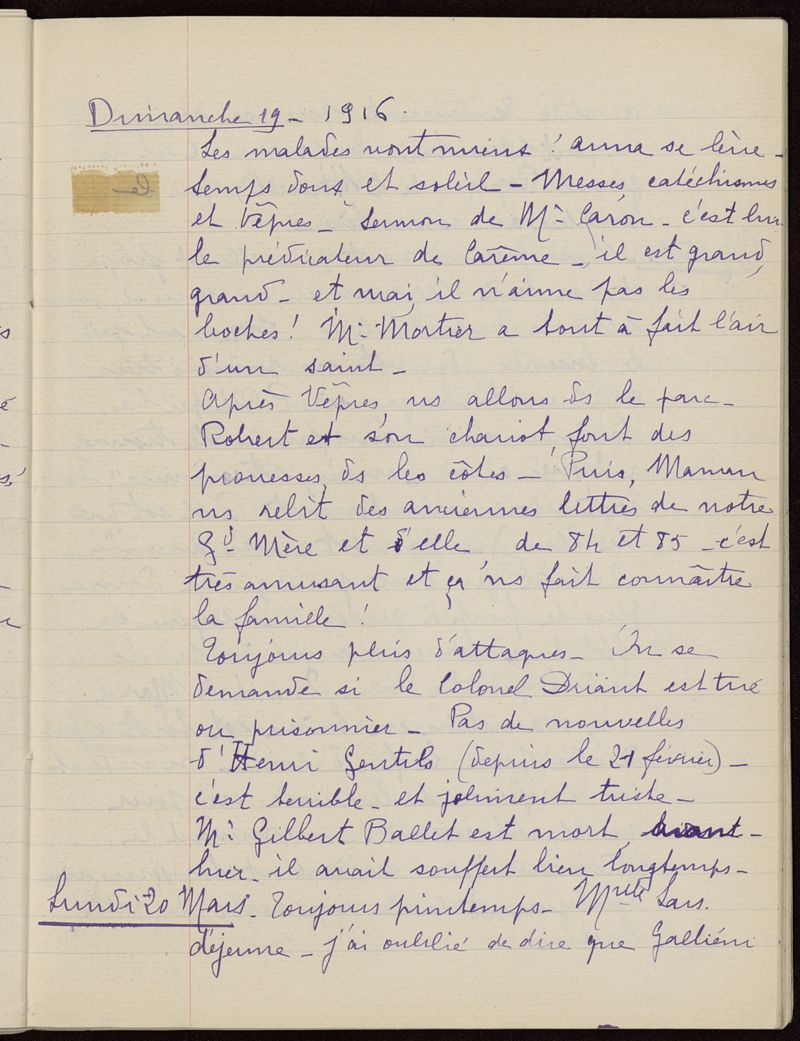 Dimanche 19 - 1916.
Les malades vont mieux ! Anna se lève -
temps doux et soleil - Messes, catéchismes
et Vêpres - Sermon de Mr. Caron - c'est lui
le prédicateur de Carême - il est grand,
grand - et mai, il n'aime pas les
boches ! Mr. Mortier a tout à fait l'air
d'un saint -
Après Vêpres, ns allons ds le parc -
Robert et son chariot, font des
prouesses, ds les côtes - Puis, Maman
ns relit des anciennes lettres de notre
Gd. Mère et d'elle de 84 et 85 - c'est
très amusant et ça ns fait connaître
la famille !
Toujours plus d'attaques - On se
demande si le Colonel Driant est tué
ou prisonnier - Pas de nouvelles
d'Henri Gentils (depuis le 21 février) -
c'est terrible - et joliment triste -
Mr. Gilbert Ballet est mort, avant-
hier - il avait souffert bien longtemps -
Lundi 20 Mars - Toujours printemps - Melle Lars.
déjeune - j'ai oublié de dire que Galliéni